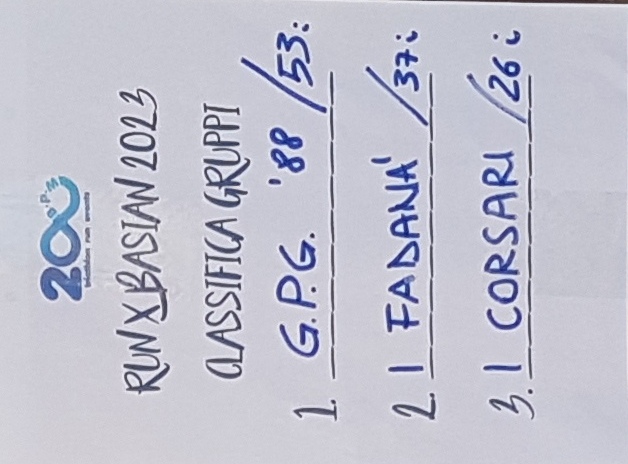 200
RUN X BASIAN 2023
CLASSIFICA GRUPPI
1. G.P.G. '88 /53:
2. I FADANA' /37:
3. I CORSARI /26 i